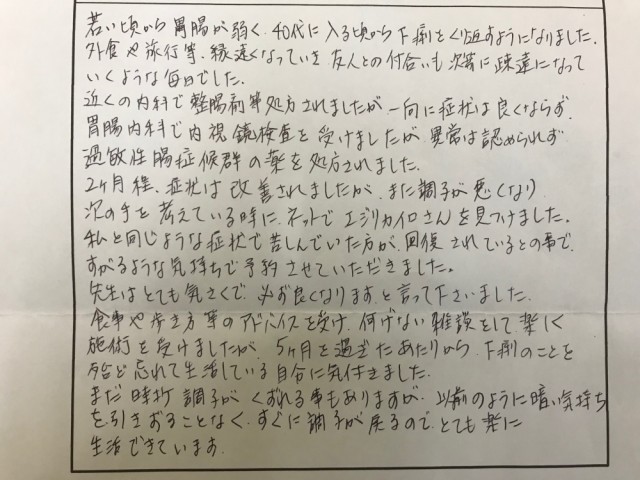 若い頃から胃腸が弱く、40代に入る頃から下痢をくり返すようになりました。
外食や旅行等、縁遠くなっていき、友人との付合いも次第に疎遠になって
いくような毎日でした。
近くの内科で整腸剤等処方されましたが、一向に症状は良くならず、
胃腸内科で内視鏡検査を受けましたが、異常は認められず
過敏性腸症候群の薬を処方されました。
2ヶ月程、症状は改善されましたが、また調子が悪くなり
次の手を考えている時に、ネットでエジリカイロさんを見つけました。
私と同じような症状で苦しんでいた方が、回復されているとの事で、
すがるような気持ちで予約させていただきました。
先生はとても気さくで、必ず良くなりますと言って下さいました。
食事や歩き方等のアドバイスを受け、何げない雑談をして楽しく
施術を受けましたが、5ヶ月を過ぎたあたりから、下痢のことを
殆ど忘れて生活している自分に気付きました。
まだ時折調子がくずれる事もありますが、以前のように暗い気持ち
を引きずることなく、すぐに調子が戻るので、とても楽に
生活できています。